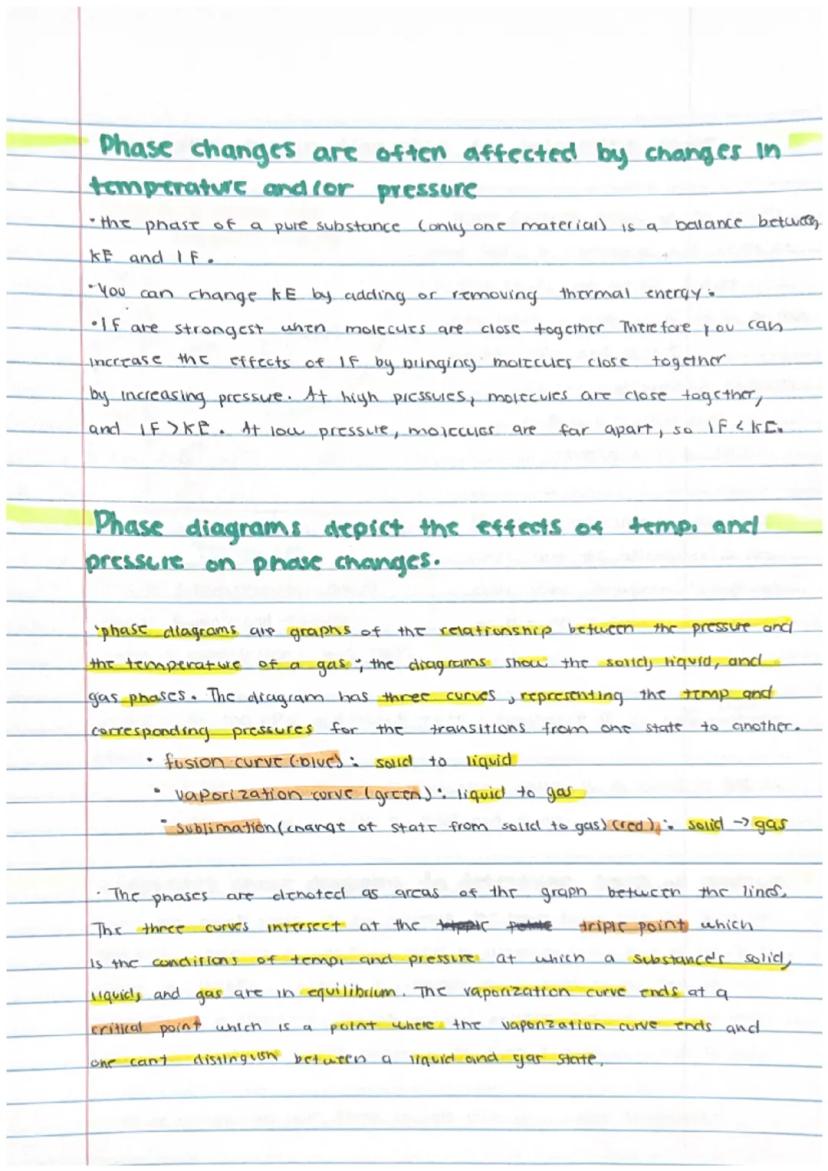 Phase changes are often affected by changes in
temperature and/or pressure
• the phase of a pure substance (only one material) is a balance between
KE and IF.
• You can change KE by adding or removing thermal energy.
• IF are strongest when molecules are close together Therefore you can
increase the effects of IF by bringing molecules close together
by increasing pressure. At high pressures, molecules are close together,
and IF > KE. At low pressure, molecules are far apart, so IF < KE.
Phase diagrams depict the effects of temp. and
pressure on phase changes.
• phase diagrams are graphs of the relationship between the pressure and
the temperature of a gas; the diagrams show the solid, liquid, and
gas phases. The diagram has three curves, representing the temp and
corresponding pressures for the transitions from one state to another.
• fusion curve (blue): solid to liquid
• vaporization curve (green): liquid to gas
• sublimation (change of state from solid to gas) (red): solid → gas
• The phases are denoted as areas of the graph between the lines.
The three curves intersect at the triple point which
is the conditions of temp. and pressure at which a substance's solid,
liquid, and gas are in equilibrium. The vaporization curve ends at a
critical point which is a point where the vaporization curve ends and
one can't distinguish between a liquid and gas state.